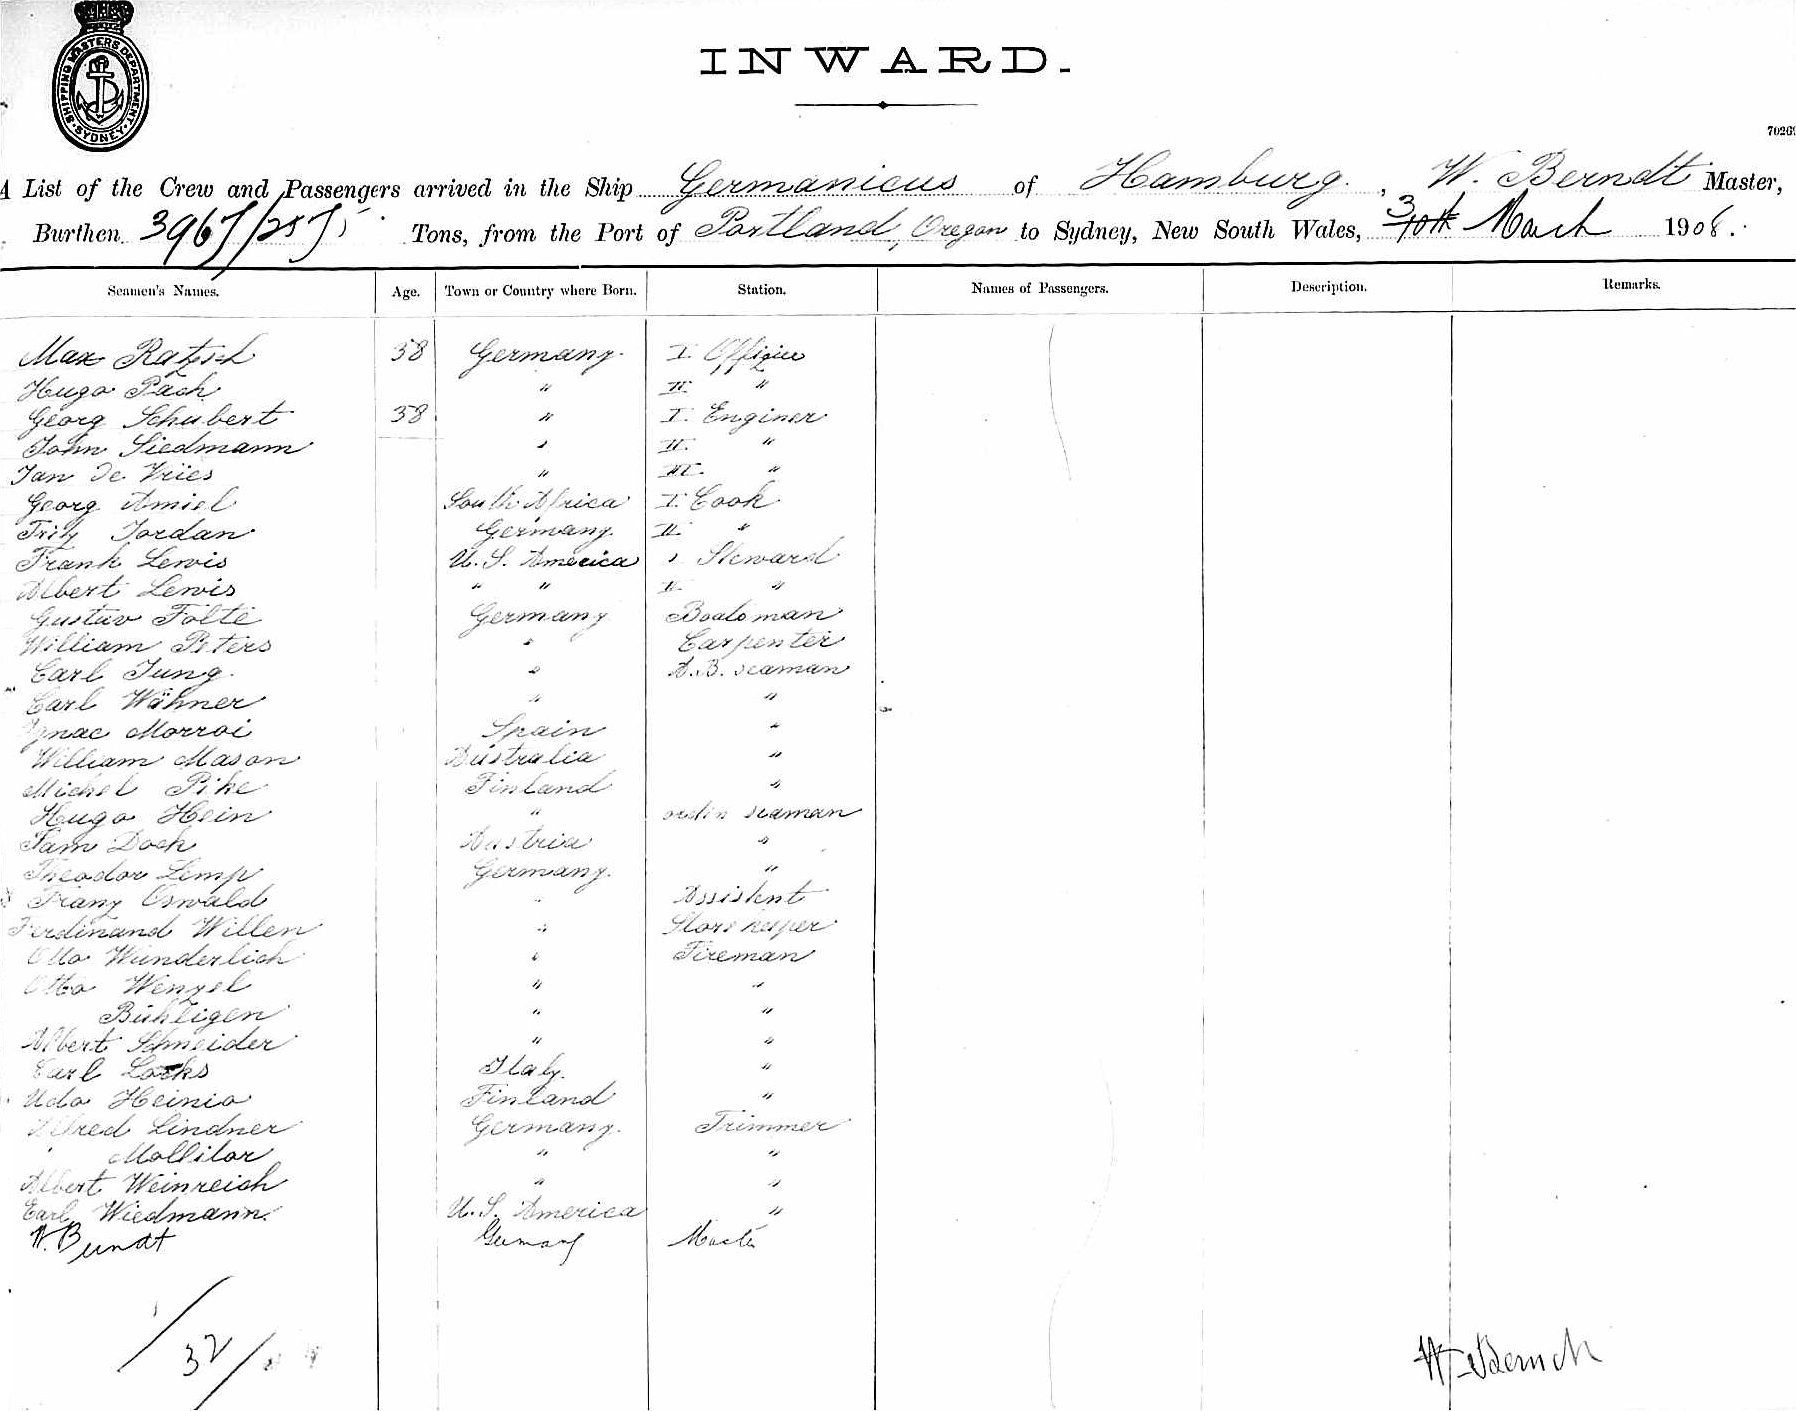 SHIPPING MASTERS DEPARTMENT · SYDNEY ·
INWARD.
7026
A List of the Crew and Passengers arrived in the Ship Germanicus of Hamburg, W. Berndt Master,
Burthen Tons, from the Port of Portland, Oregon to Sydney, New South Wales, 3 10th March 1908.
Seamen's Names. Age. Town or Country where Born. Station. Names of Passengers. Description. Remarks.
Max Ratzsch 38 Germany. I. Officier
Hugo Pach " II. "
Georg Schubert 38 " I. Enginer
John Siedmann " II. "
Jan De Vries " III. "
Georg Amiel South Africa I. Cook
Fritz Jordan Germany. II. "
Frank Lewis U. S. America I Steward
Albert Lewis " " II. "
Gustav Fölte Germany Boatsman
William Peters " Carpenter
Carl Jung. " A.B. seaman
Carl Wähner " "
Ignac Morroi Spain "
William Mason Australia "
Michel Pike Finland "
Hugo Hein " ordin seaman
Sam Doch Austria "
Theodor Lemp Germany. "
Franz Oswald " Assistent
Ferdinand Willen " Storekeeper
Otto Wunderlich " Fireman
Otto Wenzel " "
Bühligen " "
Albert Schneider " "
Carl Locks Italy. "
Udo Heinio Finland "
Alfred Lindner Germany. Trimmer
Mollitor " "
Albert Weinreich " "
Carl Wiedmann. U. S. America "
W. Berndt Germany Master
32
W. Berndt